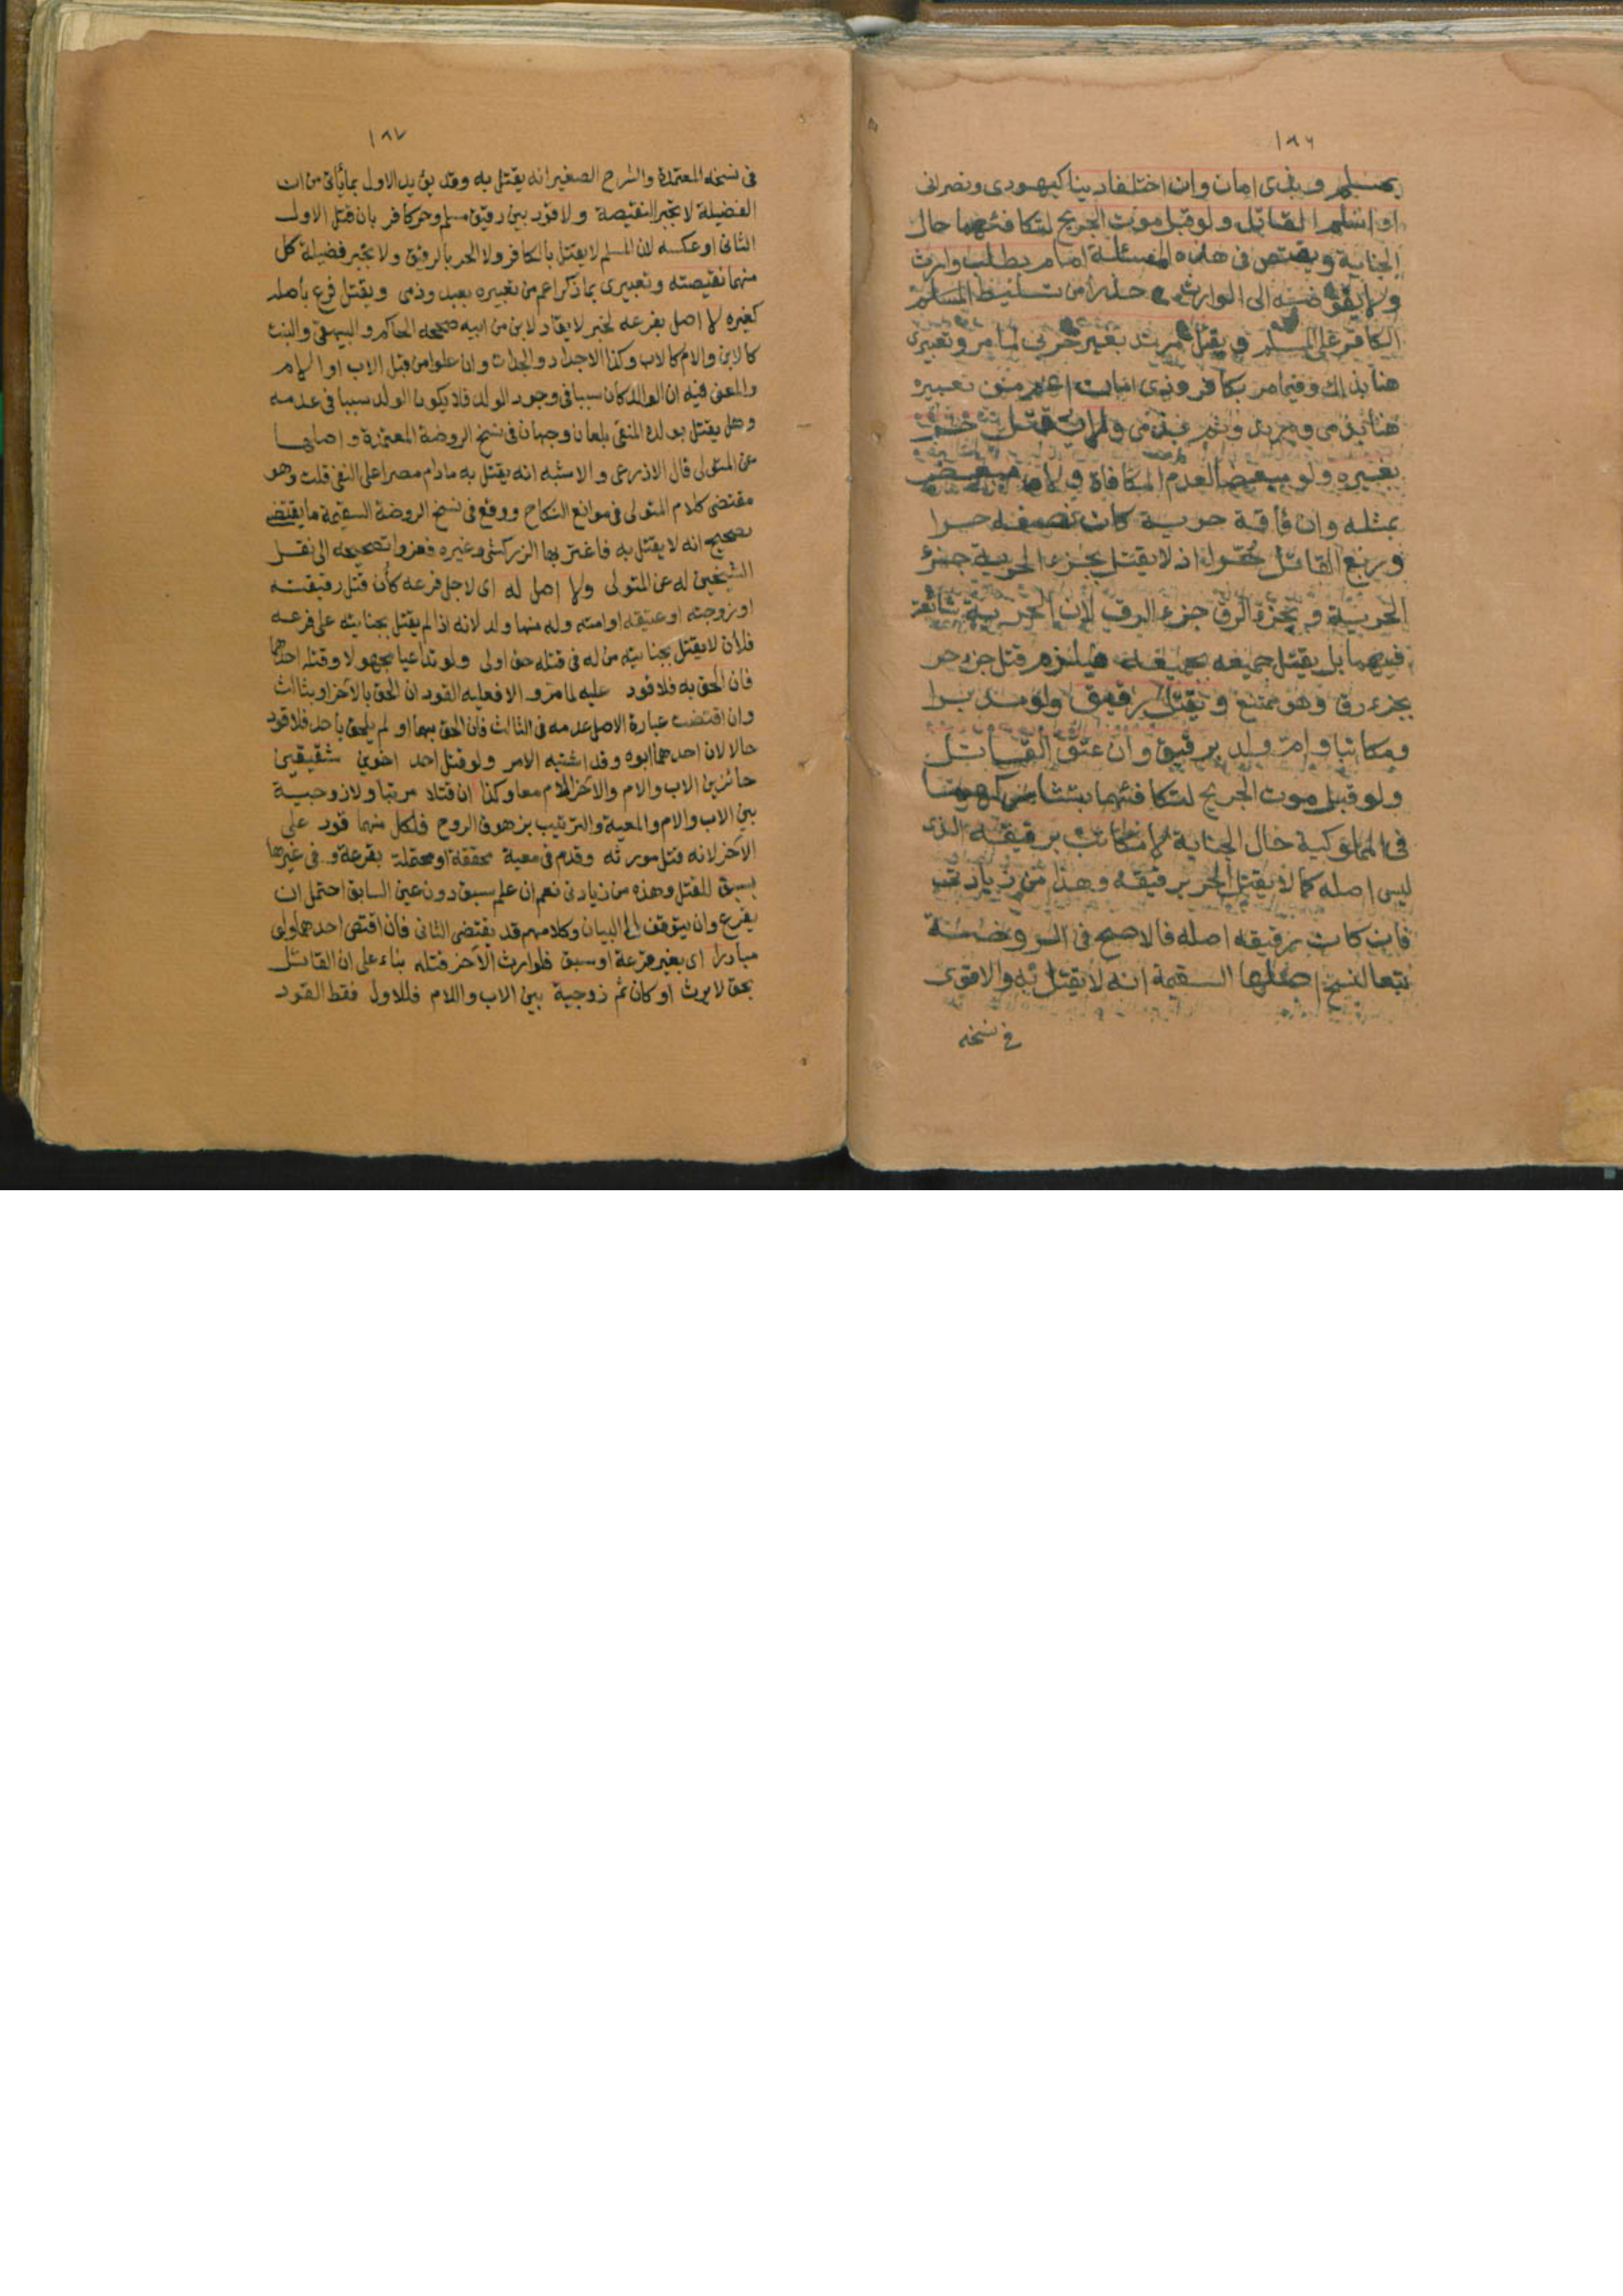 ١٨٦
بمسلم وبذى امان وان اختلفا دينا كيهودى ونصرانى
او اسلم القاتل ولو قبل موت الجريح لتكافئهما حال
الجناية ويقتص فى هذه المسئلة امام بطلب وارث
ولا يفوضه الى الوارث حذرا من تسليط المسلم
الكافر على المسلم ويقتل مرتد بغير حربى لما مر وتعبيرى
هنا بذلك وفيما مر بكافر وذى امان اعم من تعبيره
هنا بذمى ومرتد وثم بذمى ولا يقتل حر
بغيره ولو مبعضا لعدم المكافاة ولا مبعض
بمثله وان فاقه حرية كان نصفه حرا
وربع القاتل حرا اذ لا يقتل بجزء الحرية جزء
الحرية وبجزء الرق جزء الرق لان الحرية شائعة
فيهما بل يقتل جميعه بجميعه فيلزم قتل جزء حر
بجزء رق وهو ممتنع ويقتل رقيق ولو مدبرا
ومكاتبا وام ولد برقيق وان عتق القاتل
ولو قبل موت الجريح لتكافئهما بتشاركهما
فى المملوكية حال الجناية لا مكاتب برقيقه الذى
ليس اصله كما لا يقتل الحر برقيقه وهذا من زيادتى
فان كان رقيقه اصله فالاصح فى الروضة
تبعا لنسخ اصلها السقيمة انه لا يقتل به والاقوى
فى نسخه
١٨٧
فى نسخه المعتمدة والشرح الصغير انه يقتل به وقد يؤيد الاول بما يأتى من ان
الفضيلة لا تجبر النقيصة ولا قود بين رقيق مسلم وحر كافر بان قتل الاول
الثانى او عكسه لان المسلم لا يقتل بالكافر ولا الحر بالرقيق ولا تجبر فضيلة كل
منهما نقيصته وتعبيرى بما ذكر اعم من تعبيره بعبد وذمى ويقتل فرع بأصله
كغيره لا اصل بفرعه لخبر لا يقاد لابن من ابيه صححه الحاكم والبيهقى والبنت
كالابن والام كالاب وكذا الاجداد والجدات وان علوا من قبل الاب او الام
والمعنى فيه ان الوالد كان سببا فى وجود الولد فلا يكون الولد سببا فى عدمه
وهل يقتل بولده المنفى بلعان وجهان فى نسخ الروضة المعتمدة واصلها
عن المتولى قال الاذرعى والاشبه انه يقتل به ما دام مصرا على النفى قلت وهو
مقتضى كلام المتولى فى موانع النكاح ووقع فى نسخ الروضة السقيمة ما يقتضى
تصحيح انه لا يقتل به فاغتر بها الزركشى وغيره فعزوا تصحيحه الى نقل
الشيخين له عن المتولى ولا اصل له اى لاجل فرعه كأن قتل رقيقته
او زوجته او عتيقه او امته وله منها ولد لانه اذا لم يقتل بجنايته على فرعه
فلأن لا يقتل بجنايته من له فى قتله حق اولى ولو تداعيا مجهولا وقتله احدهما
فان الحق به فلا قود عليه لما مر والا فعليه القود ان الحق بالآخر او بثالث
وان اقتضت عبارة الاصل عدمه فى الثالث فان الحق بهما او لم يلحق بأحد فلا قود
حالا لان احدهما ابوه وقد اشتبه الامر ولو قتل احد اخوين شقيقين
حائزين الاب والام والآخر الام معا وكذا ان قتلا مرتبا ولا زوجية
بين الاب والام والمعية والترتيب بزهوق الروح فلكل منهما قود على
الآخر لانه قتل مورثه وقدم فى معية محققة او محتملة بقرعة وفى غيرها
بسبق للقتل وهذه من زيادتى نعم ان علم سبق دون عين السابق احتمل ان
يقرع وان يتوقف الى البيان وكلامهم قد يقتضى الثانى فان اقتص احدهما ولو
مبادرا اى بغير قرعة او سبق فلوارث الآخر قتله بناء على ان القاتل
بحق لا يرث او كان ثم زوجية بين الاب واللام فللاول فقط القود